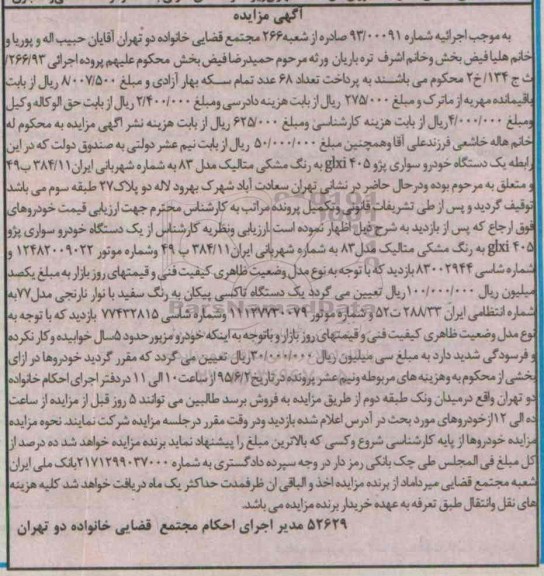 آگهی مزایده
به موجب اجرائیه شماره ۹۳/۰۰۰۹۱ صادره از شعبه ۲۶۶ مجتمع قضایی خانواده دو تهران آقایان حبیب اله و پوریا و
خانم هلیا فیض بخش وخانم اشرف تره باریان ورثه مرحوم حمیدرضا فیض بخش محکوم علیهم پروده اجرائی ۲۶۶/۹۳/
ث ج ۱۳۴/ خ۲ محکوم می باشند به پرداخت تعداد ۶۸ عدد تمام سکه بهار آزادی و مبلغ ۸/۰۰۷/۵۰۰ ریال از بابت
باقیمانده مهریه از ماترک و مبلغ ۲۷۵/۰۰۰ ریال از بابت هزینه دادرسی ومبلغ ۲/۴۰۰/۰۰۰ ریال از بابت حق الوکاله وکیل
ومبلغ ۴/۰۰۰/۰۰۰ ریال از بابت هزینه کارشناسی ومبلغ ۶۲۵/۰۰۰ ریال از بابت هزینه نشر آگهی مزایده به محکوم له
خانم هاله خاشعی فرزند علی آقا وهمچنین مبلغ ۵۰/۰۰۰/۰۰۰ ریال از بابت نیم عشر دولتی به صندوق دولت که در این
رابطه یک دستگاه خودرو سواری پژو ۴۰۵ glxi به رنگ مشکی متالیک مدل ۸۳ به شماره شهربانی ایران ۳۸۴/۱۱ ب ۴۹
و متعلق به مرحوم بوده ودرحال حاضر در نشانی تهران سعادت آباد شهرک بهرود لاله دو پلاک ۲۷ طبقه سوم می باشد
توقیف گردید و پس از طی تشریفات قانونی وتکمیل پرونده مراتب به کارشناس محترم جهت ارزیابی قیمت خودروهای
فوق ارجاع که پس از بازدید به شرح ذیل اظهار نموده است ارزیابی ونظریه کارشناس از یک دستگاه خودرو سواری پژو
۴۰۵ glxi به رنگ مشکی متالیک مدل ۸۳ به شماره شهربانی ایران ۳۸۴/۱۱ ب ۴۹ وشماره موتور ۱۲۴۸۳۰۰۹۰۲۲ و
شماره شاسی ۸۳۰۰۲۹۴۴ بازدید که با توجه به نوع مدل وضعیت ظاهری کیفیت فنی و قیمتهای روز بازار به مبلغ یکصد
میلیون ریال ۱۰۰/۰۰۰/۰۰۰ ریال تعیین می گردد یک دستگاه تاکسی پیکان به رنگ سفید با نوار نارنجی مدل ۷۷ به
شماره انتظامی ایران ۲۸۸/۳۳ ت ۵۲ و شماره موتور ۱۱۴۱۳۷۷۳۰۰۷۹ و شماره شاسی ۷۷۴۳۲۸۱۵ بازدید که با توجه به
نوع مدل وضعیت ظاهری کیفیت فنی و قیمتهای روز بازار وباتوجه به اینکه خودرو مزبور حدود ۵ سال خوابیده و کار نکرده
و فرسودگی شدید دارد به مبلغ سی میلیون ریال ۳۰/۰۰۰/۰۰۰ ریال تعیین می گردد که مقرر گردید خودروها در ازای
بخشی از محکوم به وهزینه های مربوطه ونیم عشر پرونده در تاریخ ۹۵/۶/۲ از ساعت ۱۰ الی ۱۱ دردفتر اجرای احکام خانواده
دو تهران واقع درمیدان ونک طبقه دوم از طریق مزایده به فروش برسد طالبین می توانند ۵ روز قبل از مزایده از ساعت
ده الی ۱۲ از خودروهای مورد بحث در آدرس اعلام شده بازدید ودر وقت مقرر درجلسه مزایده شرکت نمایند. نحوه مزایده
مزایده خودروها از پایه کارشناسی شروع وکسی که بالاترین مبلغ را پیشنهاد نماید برنده مزایده خواهد شد ده درصد از
کل مبلغ فی المجلس طی چک بانکی رمز دار در وجه سپرده دادگستری به شماره ۲۱۷۱۲۹۹۰۳۷۰۰۰ بانک ملی ایران
شعبه مجتمع قضایی میرداماد از برنده مزایده اخذ و الباقی ان ظرفمدت حداکثر یک ماه دریافت خواهد شد کلیه هزینه
های نقل وانتقال طبق تعرفه به عهده خریدار برنده مزایده می باشد.
۵۲۶۲۹ مدیر اجرای احکام مجتمع قضایی خانواده دو تهران